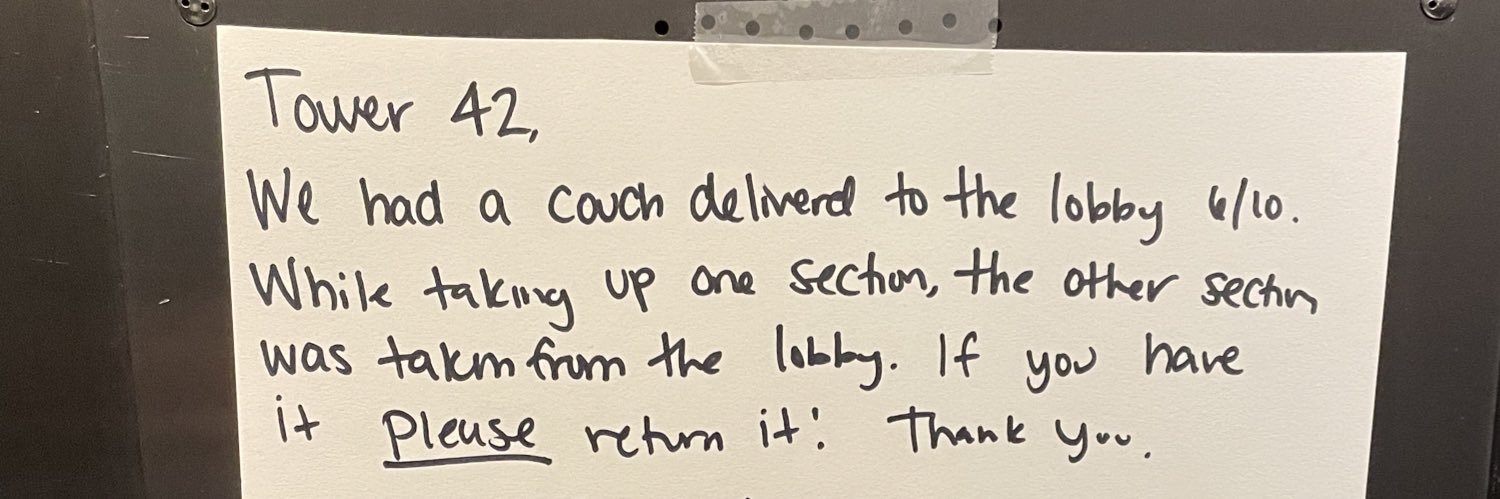 Tower 42,
We had a couch deliverd to the lobby 6/10.
While taking up one section, the other section
was taken from the lobby. If you have
it please return it! Thank you.